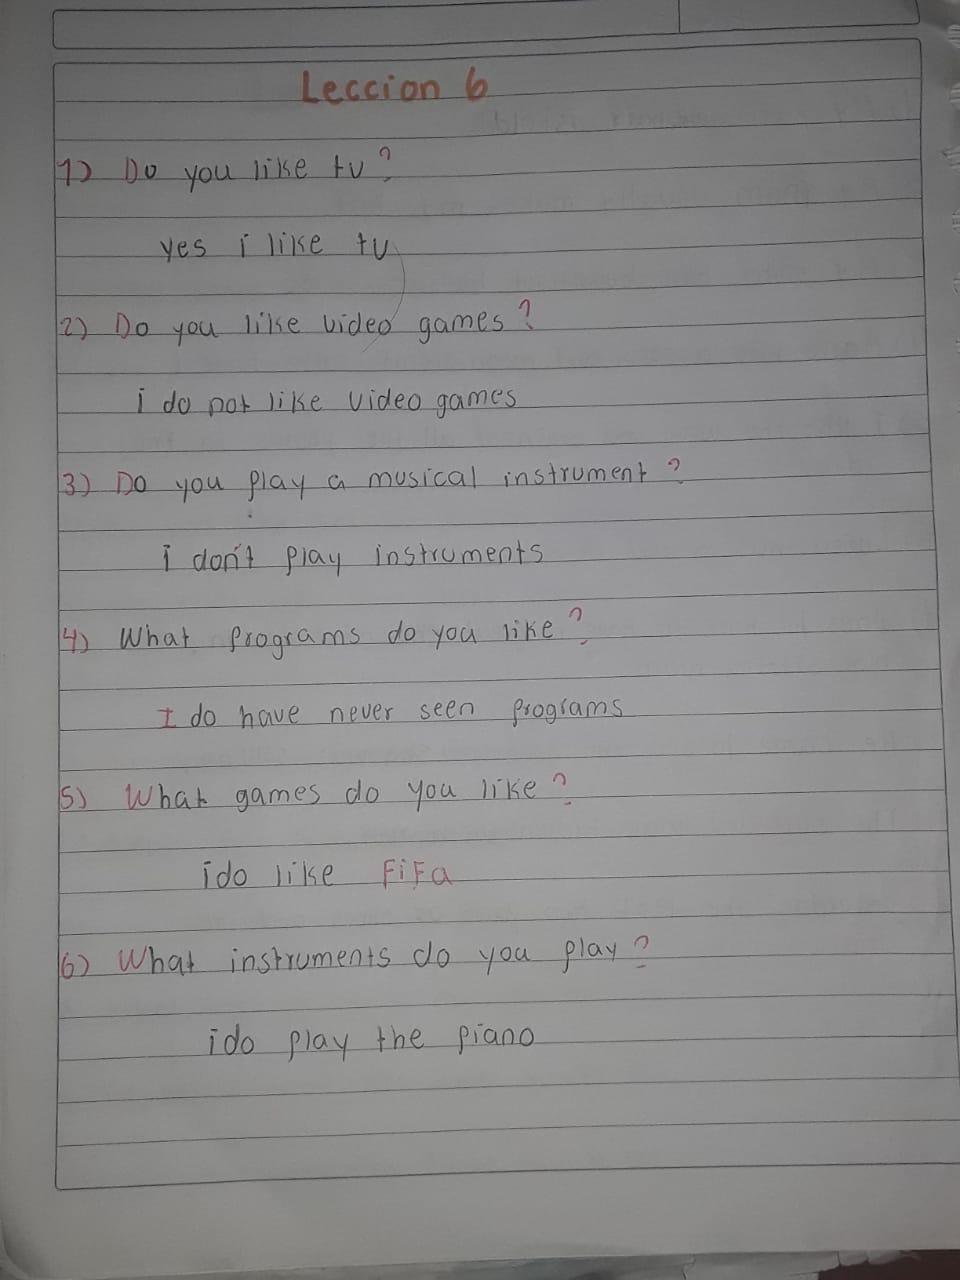 Leccion 6
1) Do you like tv?
yes i like tv
2) Do you like video games?
i do not like video games
3) Do you play a musical instrument?
i don't play instruments
4) What programs do you like?
I do have never seen programs
5) What games do you like?
i do like FiFa
6) What instruments do you play?
i do play the piano